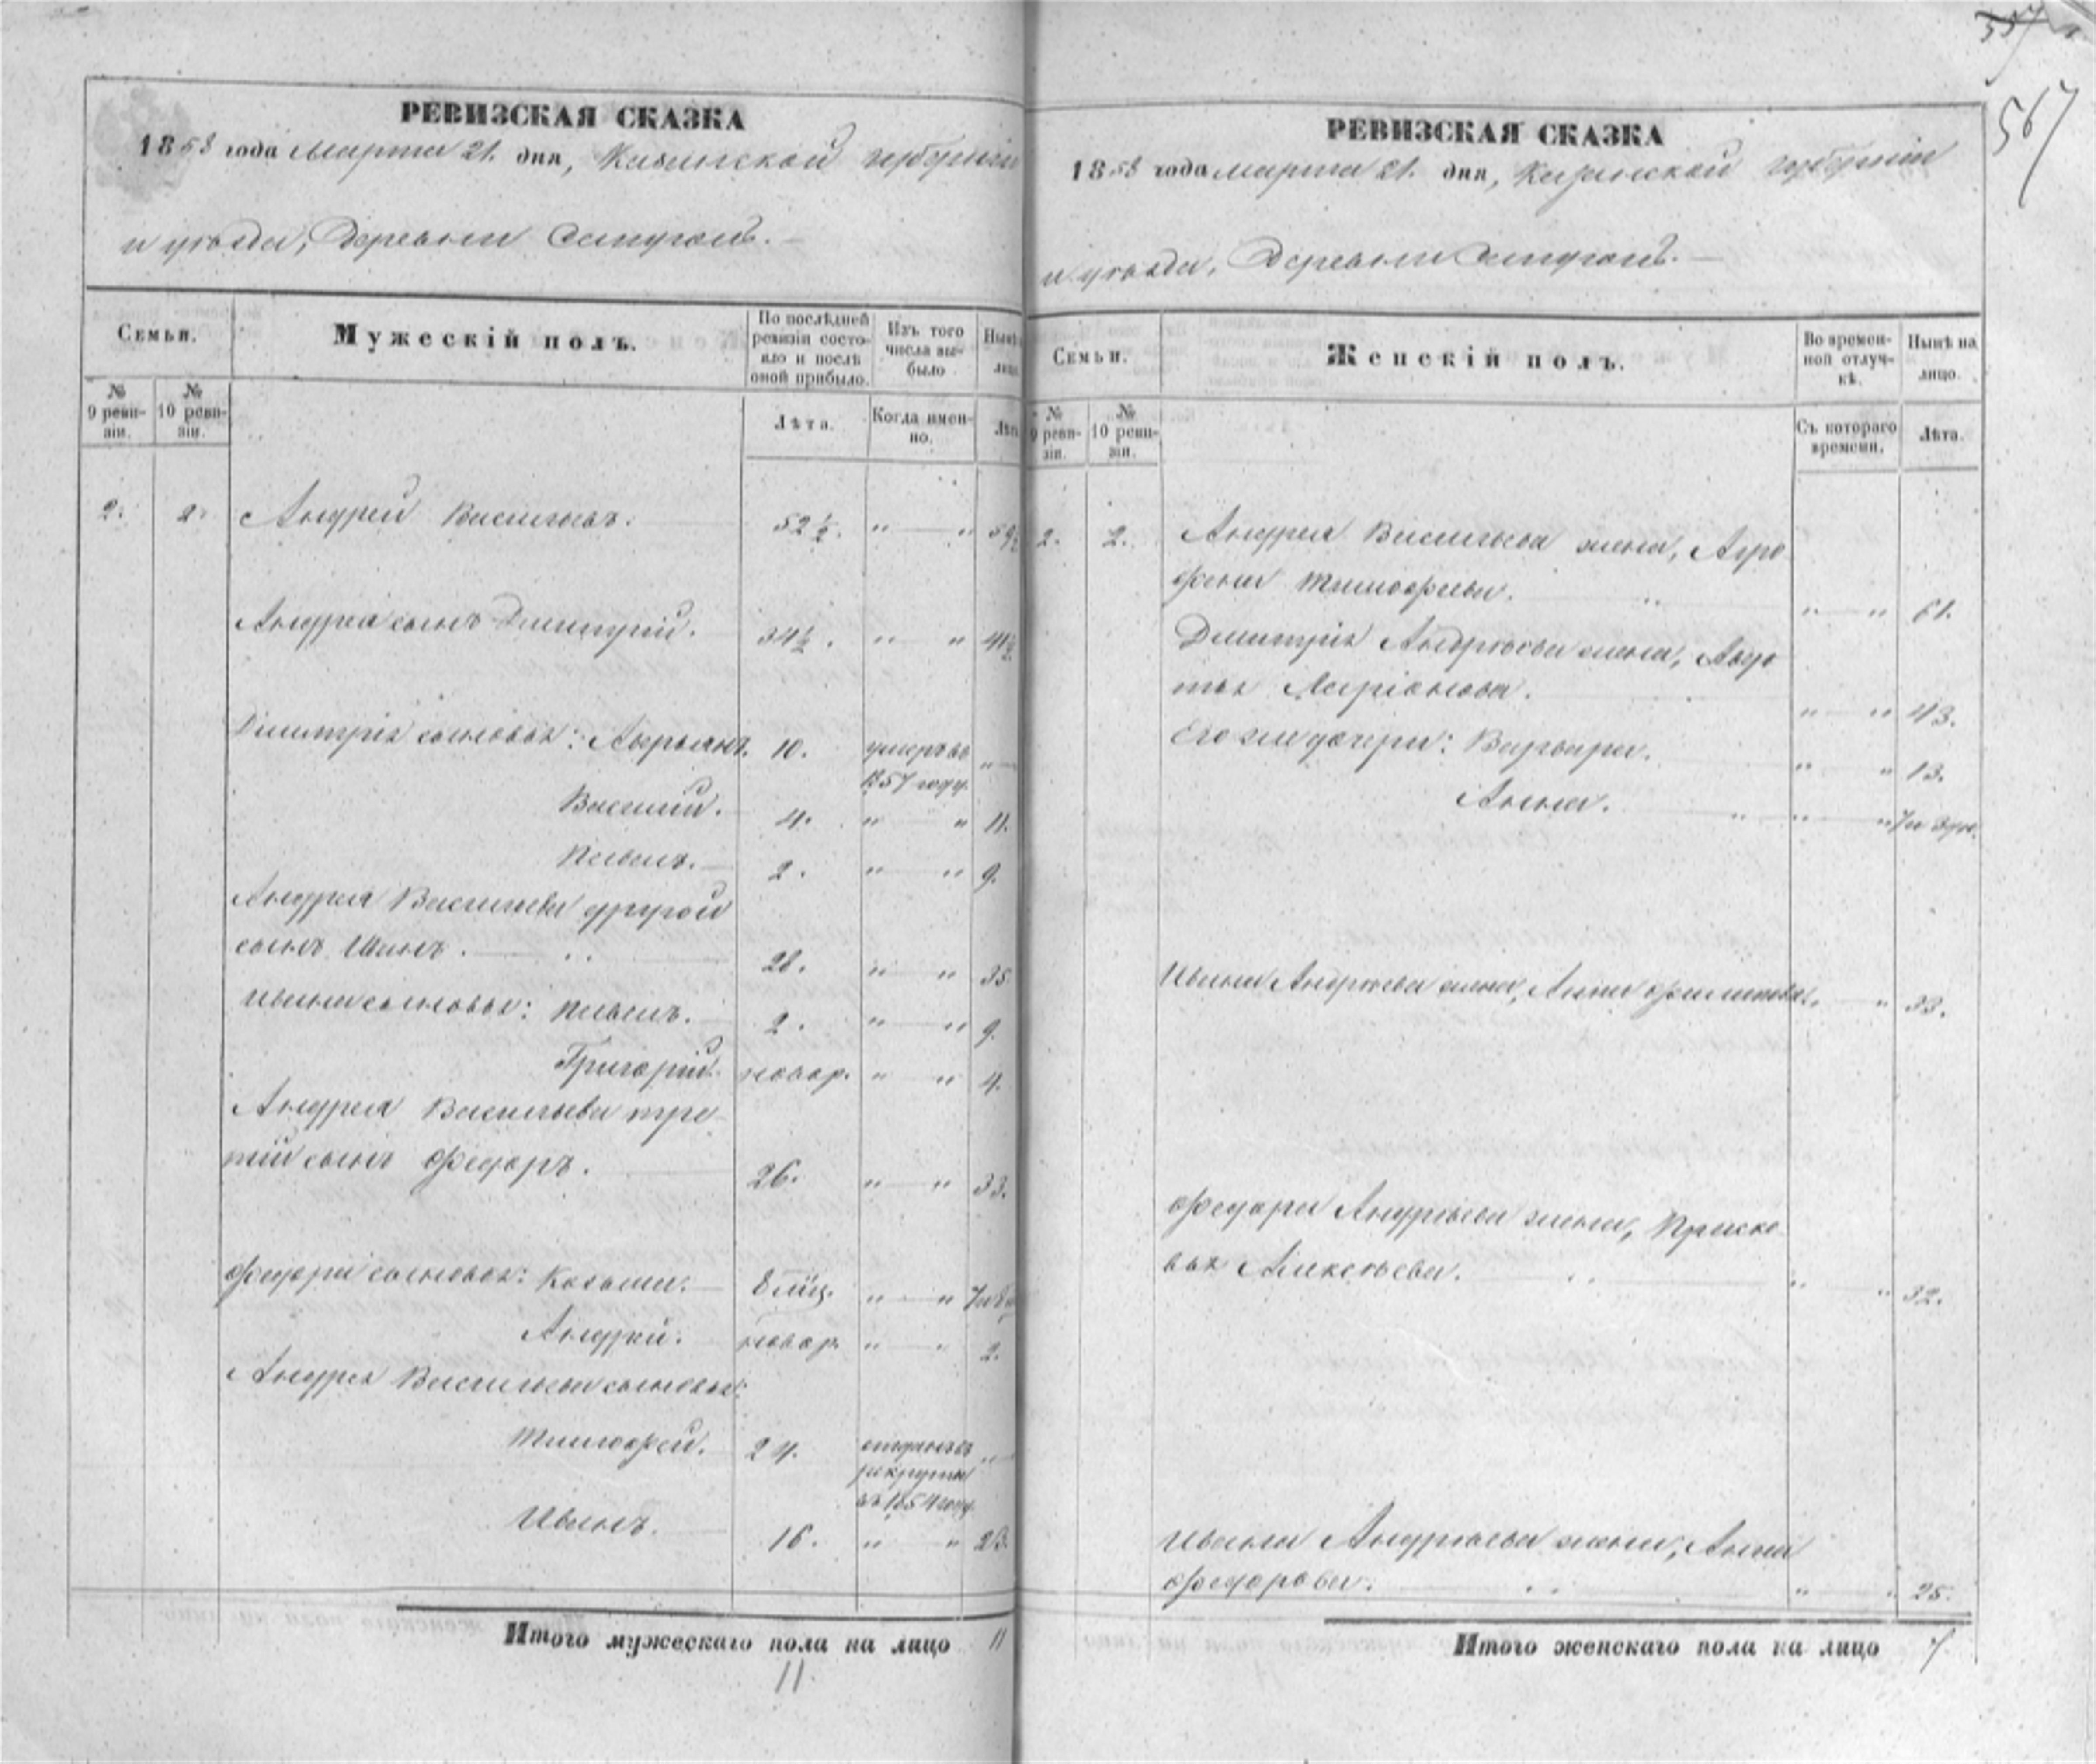 567
РЕВИЗСКАЯ СКАЗКА
1858 года марта 21. дня, Казанской губернiи
и уѣзда, Деревни
Семьи.
Мужескій полъ.
По послѣдней ревизіи состояло и послѣ оной прибыло.
Изъ того числа выбыло
Нынѣ лицо
№ 9 ревизіи.
№ 10 ревизіи.
Лѣта.
Когда именно.
Лѣта
2. 2. Андрей Васильевъ. 52½. " — " 59½
Андрея сынъ Дмитрій. 34½. " " 41½
Дмитрія сыновья: 10. умеръ въ 1857 году. " —
Василій. 4. " — " 11.
Павелъ. 2. " — " 9.
Андрея Васильева другой
сынъ Иванъ. 28. " " 35
Ивана сыновья: Павелъ. 2. " — " 9.
Григорій. новор. " " 4.
Андрея Васильева тре-
тій сынъ Федоръ. 26. " — " 33.
Федора сыновья: Козьма. 8 мѣс. " — "
Андрей. новор. " — " 2.
Андрея Васильева сыновья:
Тимофей. 24. отданъ въ рекруты въ 1854 году. "
Иванъ. 16. " — " 23.
Итого мужескаго пола на лицо 11
11.
РЕВИЗСКАЯ СКАЗКА
1858 года марта 21. дня, Казанской губерніи
и уѣзда, Деревни
Семьи.
Женскій полъ.
Во временной отлучкѣ.
Нынѣ на лицо.
№ 9 ревизіи.
№ 10 ревизіи.
Съ котораго времени.
Лѣта.
2. 2. Андрея Васильева жена, Агро-
фена Тимофеева. " — " 61.
Дмитрія Андреева жена, Авдо-
тья " — " 43.
Его же дочери: Варвара. " " 13.
Анна. " "
Ивана Андреева жена, Анна " 33.
Федора Андреева жена, Праско-
вья Алексѣева. " " 32.
Ивана Андреева жена, Анна
Федорова. " " 25.
Итого женскаго пола на лицо 7